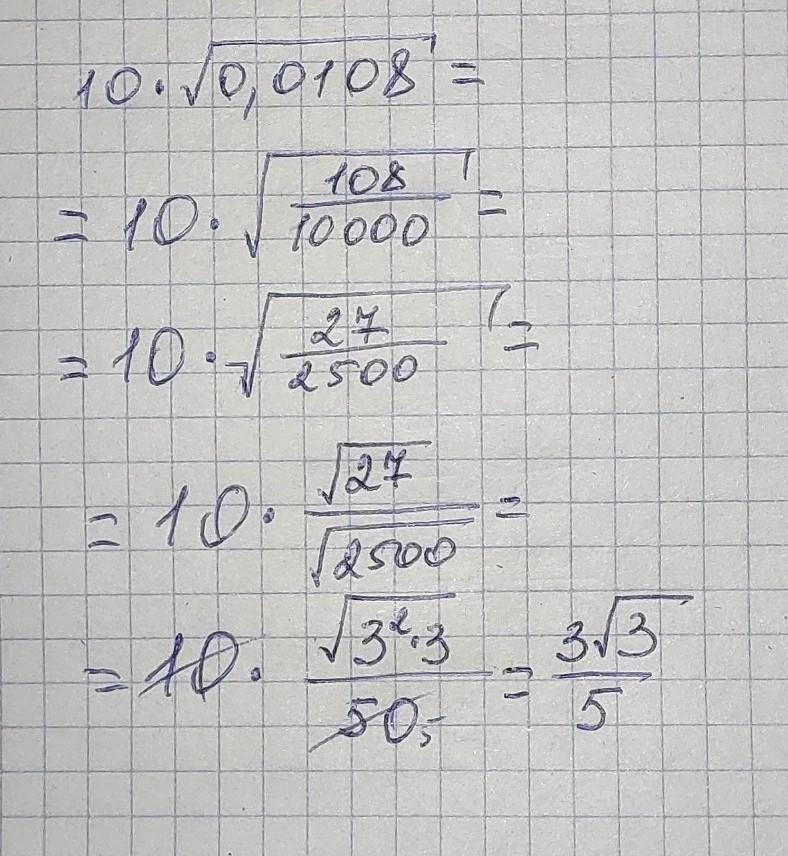 10·√0,0108 =
= 10·√(108/10000) =
= 10·√(27/2500) =
= 10·√27/√2500 =
= 10·√(3²·3)/50 5 = 3√3/5